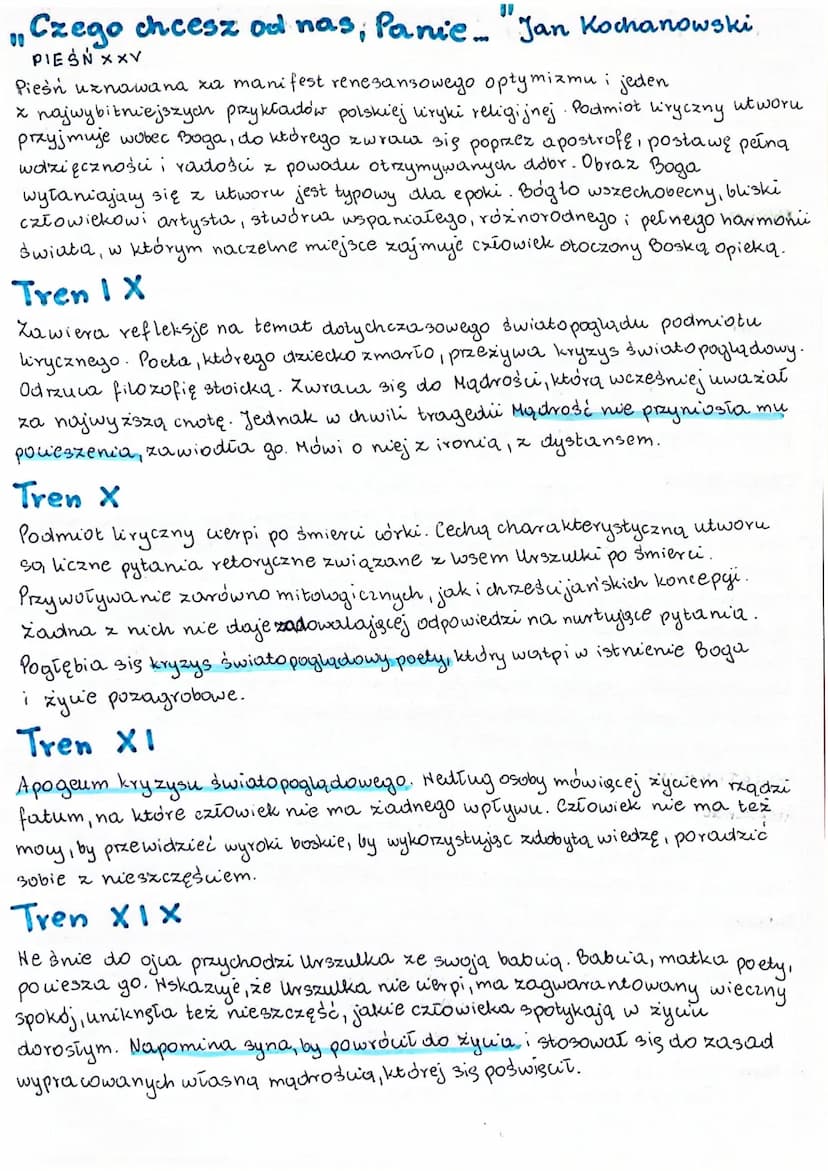 „Czego chcesz od nas, Panie..." Jan Kochanowski
PIEŚŃ XXV
Pieśń uznawana za manifest renesansowego optymizmu i jeden
z najwybitniejszych przykładów polskiej liryki religijnej. Podmiot liryczny utworu
przyjmuje wobec Boga, do którego zwraca się poprzez apostrofę, postawę pełną
wdzięczności i radości z powodu otrzymywanych dóbr. Obraz Boga
wyłaniający się z utworu jest typowy dla epoki. Bóg to wszechobecny, bliski
człowiekowi artysta, stwórca wspaniałego, różnorodnego i pełnego harmonii
świata, w którym naczelne miejsce zajmuje człowiek otoczony Boską opieką.
Tren IX
Zawiera refleksje na temat dotychczasowego światopoglądu podmiotu
lirycznego. Poeta, którego dziecko zmarło, przeżywa kryzys światopoglądowy.
Odrzuca filozofię stoicką. Zwraca się do Mądrości, którą wcześniej uważał
za najwyższą cnotę. Jednak w chwili tragedii Mądrość nie przyniosła mu
pocieszenia, zawiodła go. Mówi o niej z ironią, z dystansem.
Tren X
Podmiot liryczny cierpi po śmierci córki. Cechą charakterystyczną utworu
są liczne pytania retoryczne związane z losem Urszulki po śmierci.
Przywoływanie zarówno mitologicznych, jak i chrześcijańskich koncepcji.
Żadna z nich nie daje zadowalającej odpowiedzi na nurtujące pytania.
Pogłębia się kryzys światopoglądowy poety, który wątpi w istnienie Boga
i życie pozagrobowe.
Tren XI
Apogeum kryzysu światopoglądowego. Według osoby mówiącej życiem rządzi
fatum, na które człowiek nie ma żadnego wpływu. Człowiek nie ma też
mocy, by przewidzieć wyroki boskie, by wykorzystując zdobytą wiedzę, poradzić
sobie z nieszczęściem.
Tren XIX
We śnie do ojca przychodzi Urszulka ze swoją babcią. Babcia, matka poety,
pociesza go. Wskazuje, że Urszulka nie cierpi, ma zagwarantowany wieczny
spokój, uniknęła też nieszczęść, jakie człowieka spotykają w życiu
dorosłym. Napomina syna, by powrócił do życia i stosował się do zasad
wypracowanych własną mądrością, której się poświęcił.